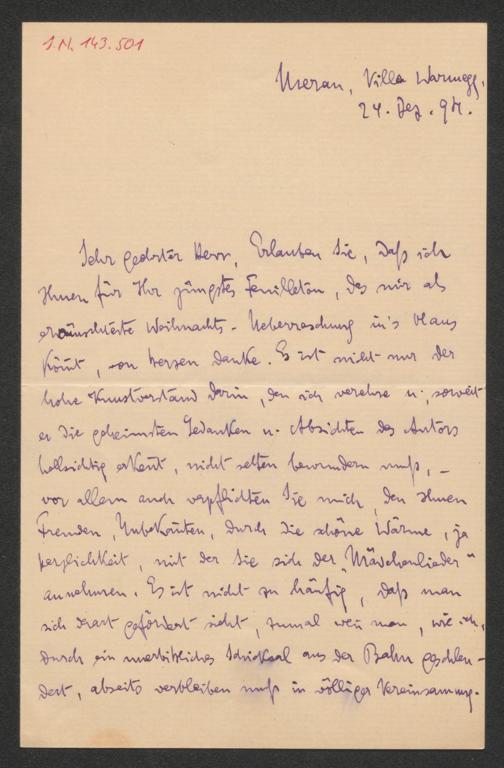 J.N. 143.501
Meran, Villa Warmegg,
24. Dez. 94.
Sehr geehrter Herr, Erlauben Sie, daß ich
Ihnen für Ihr jüngstes Feuilleton, das mir als
erwünschteste Weihnachts-Ueberraschung in's Haus
kom̄t, von Herzen danke. Es ist nicht nur der
hohe Kunstverstand darin, den ich verehre u. soweit
er die geheimsten Gedanken u. Absichten des Autors
hellsichtig erken̄t, nicht selten bewundern muß, –
vor allem auch verpflichten Sie mich, den Ihnen
Fremden, Unbekan̄ten, durch die schöne Wärme, ja
Herzlichkeit, mit der Sie sich der „Mädchenlieder"
annehmen. Es ist nicht zu häufig, daß man
sich derart gefördert sieht, zumal wen̄ man, wie ich,
durch ein unerbittliches Schicksal aus der Bahn geschleu-
dert, abseits verbleiben muß in völliger Vereinsamung.